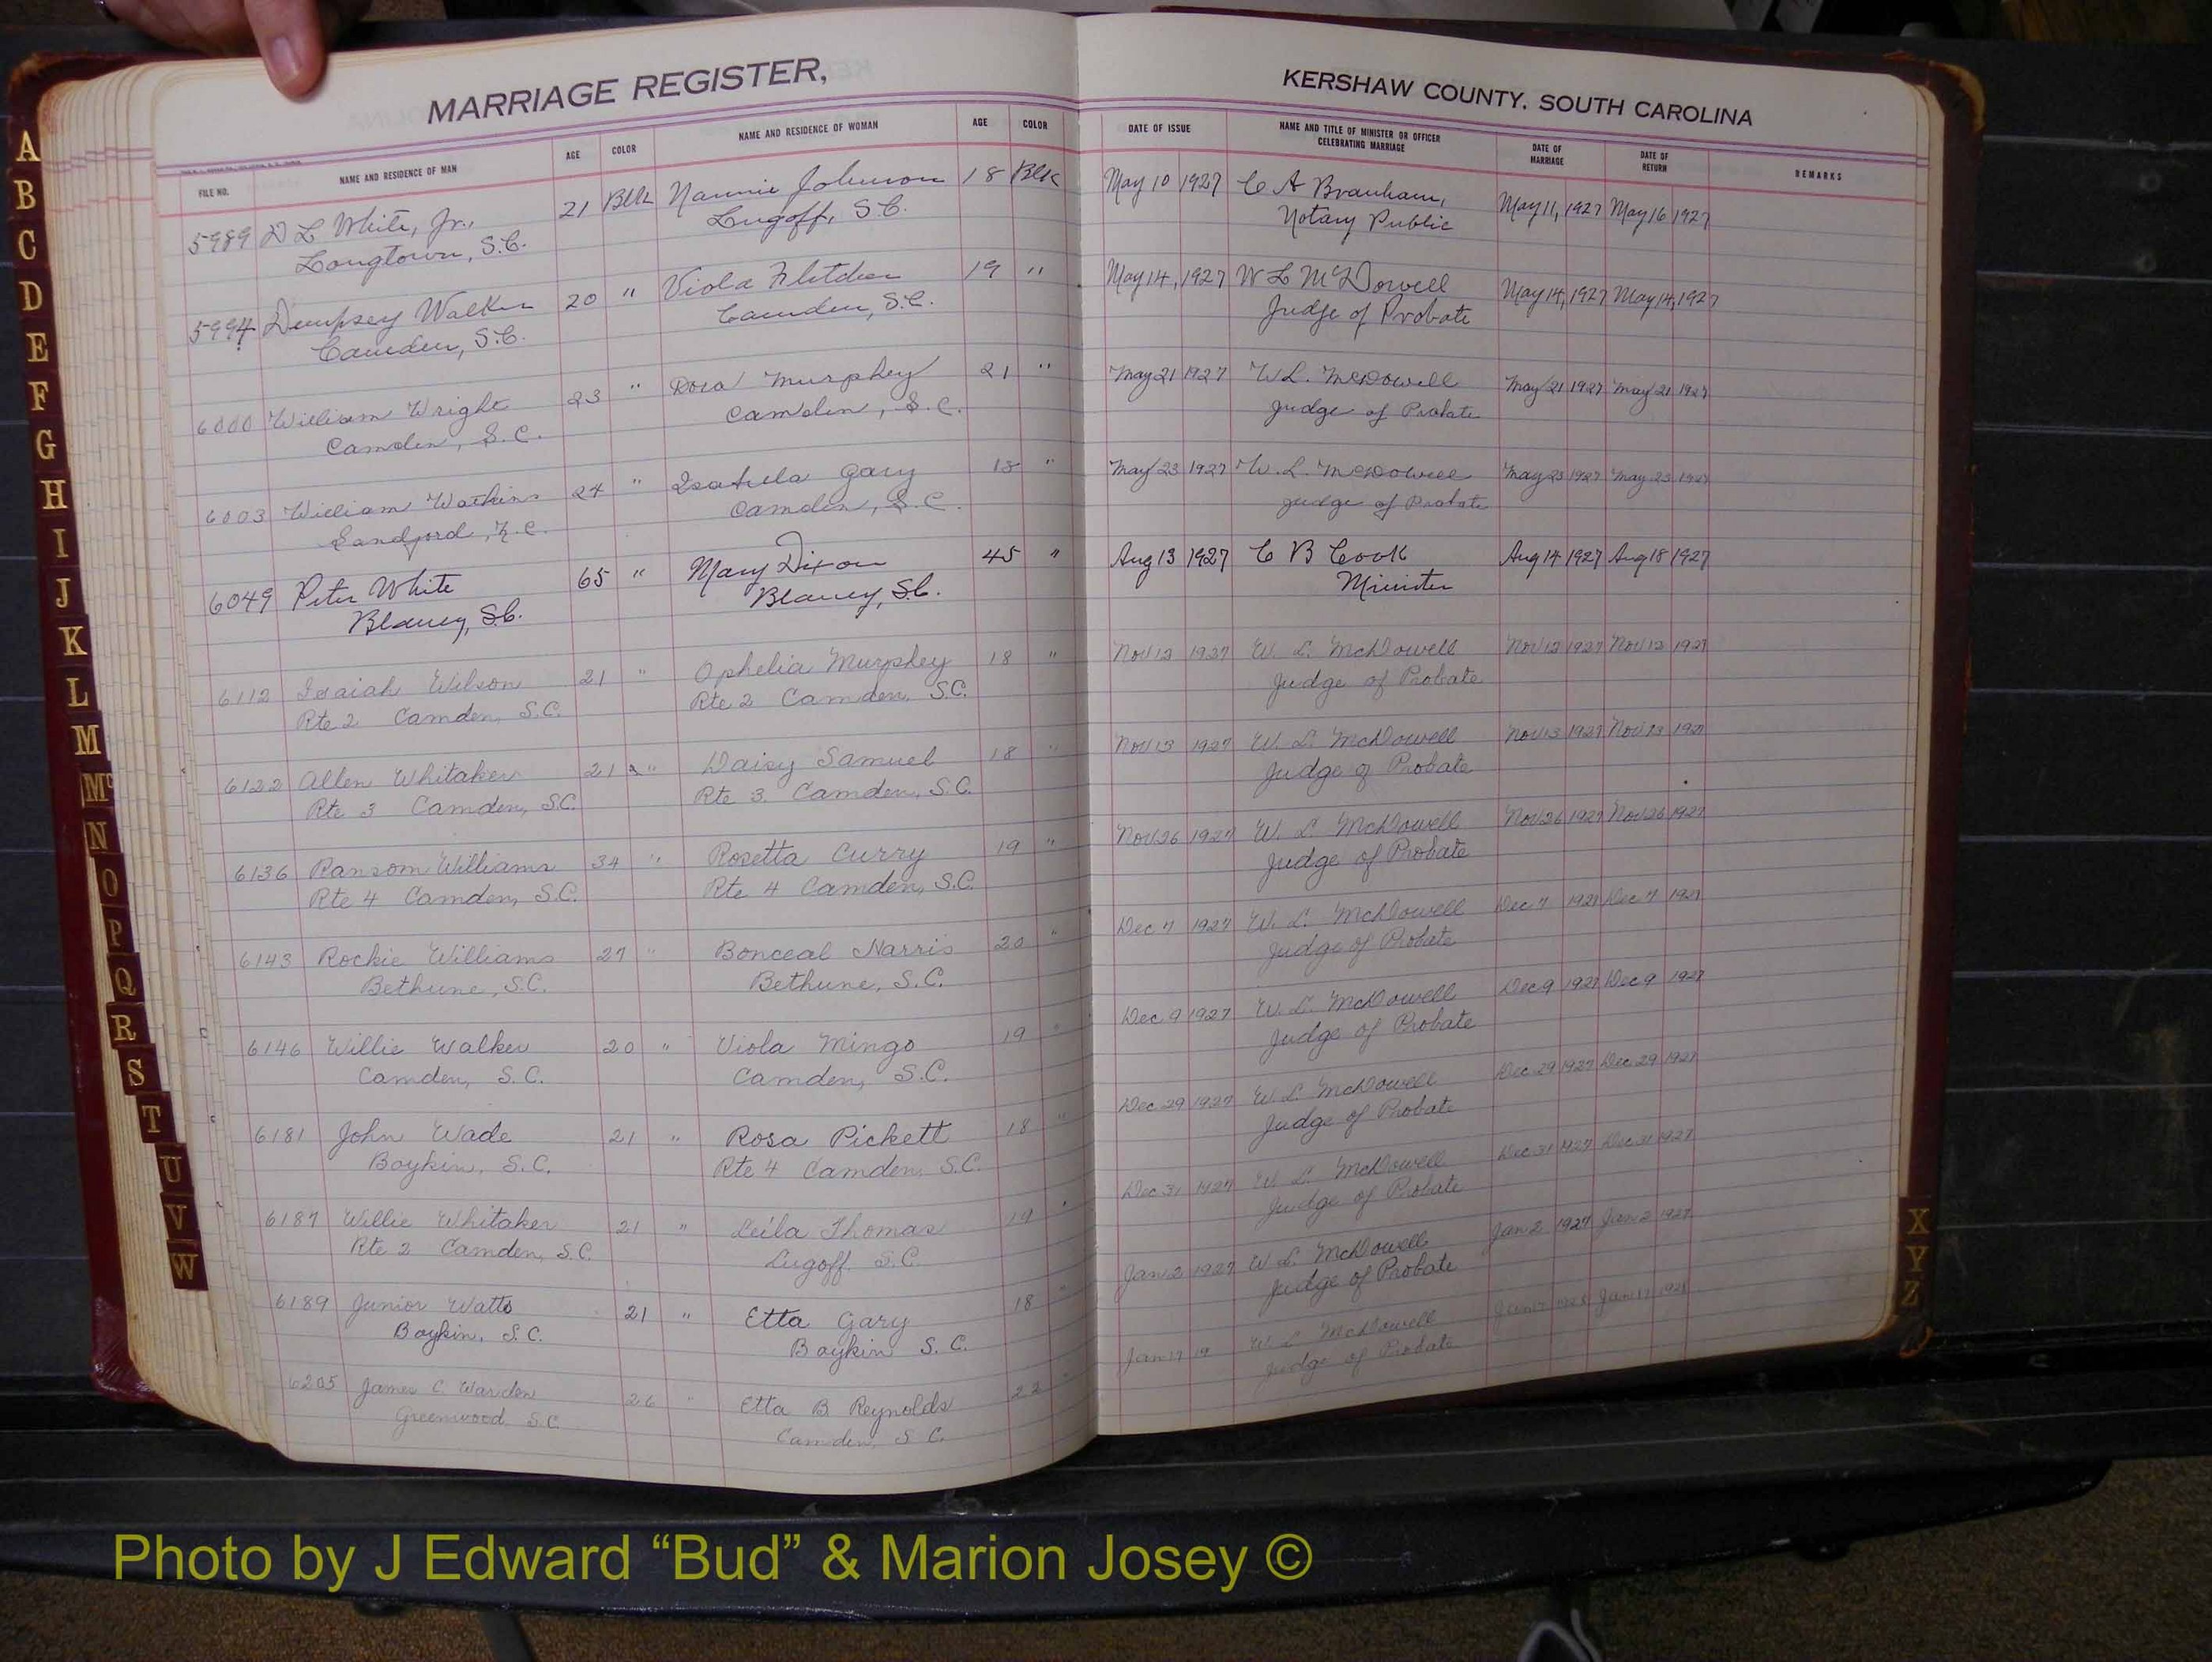 MARRIAGE REGISTER,
FILE NO. NAME AND RESIDENCE OF MAN AGE COLOR NAME AND RESIDENCE OF WOMAN AGE COLOR
5989 D L White, Jr., 21 Blk Nannie Johnson 18 Blk
Longtown, S.C. Lugoff, S.C.
5994 Dempsey Walker 20 " Viola Fletcher 19 "
Camden, S.C. Camden, S.C.
6000 William Wright 23 " Rosa Murphey 21 "
Camden, S.C. Camden, S.C.
6003 William Watkins 24 " Isabella Gary "
Sandford, N.C. Camden, S.C.
6049 Peter White 65 " Mary Dixon 45 "
Blaney, S.C. Blaney, S.C.
6112 Isaiah Wilson 21 " Ophelia Murphey 18 "
Rte 2 Camden, S.C. Rte 2 Camden, S.C.
6122 Allen Whitaker 21 " Daisy Samuel 18 "
Rte 3 Camden, S.C. Rte 3 Camden, S.C.
6136 Ransom Williams 34 " Rosetta Curry 19 "
Rte 4 Camden, S.C. Rte 4 Camden, S.C.
6143 Rockie Williams 27 " Bonceal Narris 20 "
Bethune, S.C. Bethune, S.C.
6146 Willie Walker 20 " Viola Mingo 19 "
Camden, S.C. Camden, S.C.
6181 John Wade 21 " Rosa Pickett 18 "
Boykin, S.C. Rte 4 Camden, S.C.
6187 Willie Whitaker 21 " Leila Thomas 19 "
Rte 2 Camden, S.C. Lugoff S.C.
6189 Junior Watts 21 " Etta Gary 18 "
Boykin, S.C. Boykin S.C.
6205 James C. Warden 26 " Etta B Reynolds 22 "
Greenwood S.C. Camden, S.C.
KERSHAW COUNTY, SOUTH CAROLINA
DATE OF ISSUE NAME AND TITLE OF MINISTER OR OFFICER CELEBRATING MARRIAGE DATE OF MARRIAGE DATE OF RETURN REMARKS
May 10 1927 C A Branham, May 11, 1927 May 16 1927
Notary Public
May 14, 1927 W L McDowell May 14, 1927 May 14, 1927
Judge of Probate
May 21 1927 W.L. McDowell May 21 1927 May 21 1927
Judge of Probate
May 23 1927 W.L. McDowell May 23 1927 May 23 1927
Judge of Probate
Aug 13 1927 C B Cook Aug 14 1927 Aug 18 1927
Minister
Nov 12 1927 W. L. McDowell Nov 12 1927 Nov 12 1927
Judge of Probate
Nov 13 1927 W. L. McDowell Nov 13 1927 Nov 13 1927
Judge of Probate
Nov 26 1927 W. L. McDowell Nov 26 1927 Nov 26 1927
Judge of Probate
Dec 7 1927 W. L. McDowell Dec 7 1927 Dec 7 1927
Judge of Probate
Dec 9 1927 W. L. McDowell Dec 9 1927 Dec 9 1927
Judge of Probate
Dec 29 1927 W. L. McDowell Dec 29 1927 Dec 29 1927
Judge of Probate
Dec 31 1927 W. L. McDowell Dec 31 1927 Dec 31 1927
Judge of Probate
Jan 2 1927 W L McDowell Jan 2 1927 Jan 2 1927
Judge of Probate
Jan 17 19 W. L McDowell Jan 17 1928 Jan 17 1928
Judge of Probate
A
B
C
D
E
F
G
H
I
J
K
L
M
Mc
N
O
P
Q
R
S
T
U
V
W
X
Y
Z
Photo by J Edward “Bud” & Marion Josey ©